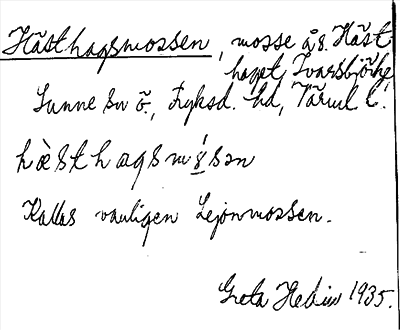 Hästhagsmossen, mosse å s. Häst
haget, Ivarsbjörke
Sunne sn ö., Fryksd. hd, Värml l.
hæ̀sthaqsmɤ́sən
Kallas vanligen Lejonmossen.
Greta Hedin 1935.